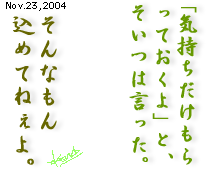 Nov.23,2004
「気持ちだけもら
っておくよ」と、
そいつは言った。
そんなもん
込めてねぇよ。